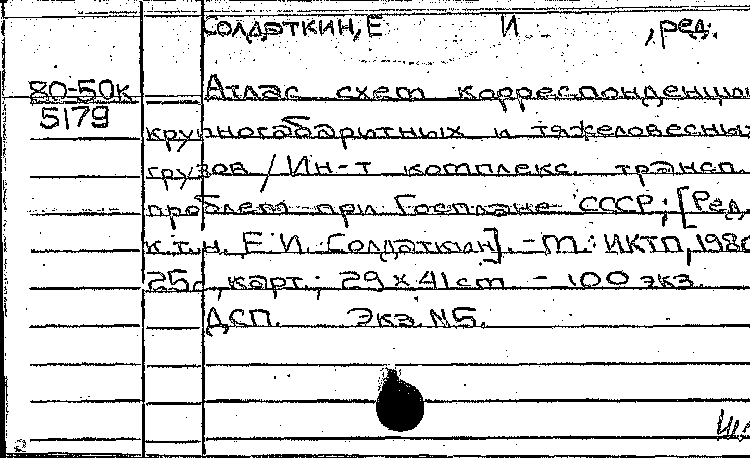 Солдаткин, Е И , ред.
80-50к
5179
Атлас схем корреспонденции
крупногабаритных и тяжеловесных
грузов / Ин-т комплекс. трансп.
проблем при Госплане СССР; [Ред.
к.т.н. Е.И. Солдаткин]. - М.: ИКТП, 1980
25с., карт.; 29 x 41 cm - 100 экз.
ДСП. Экз. N5.